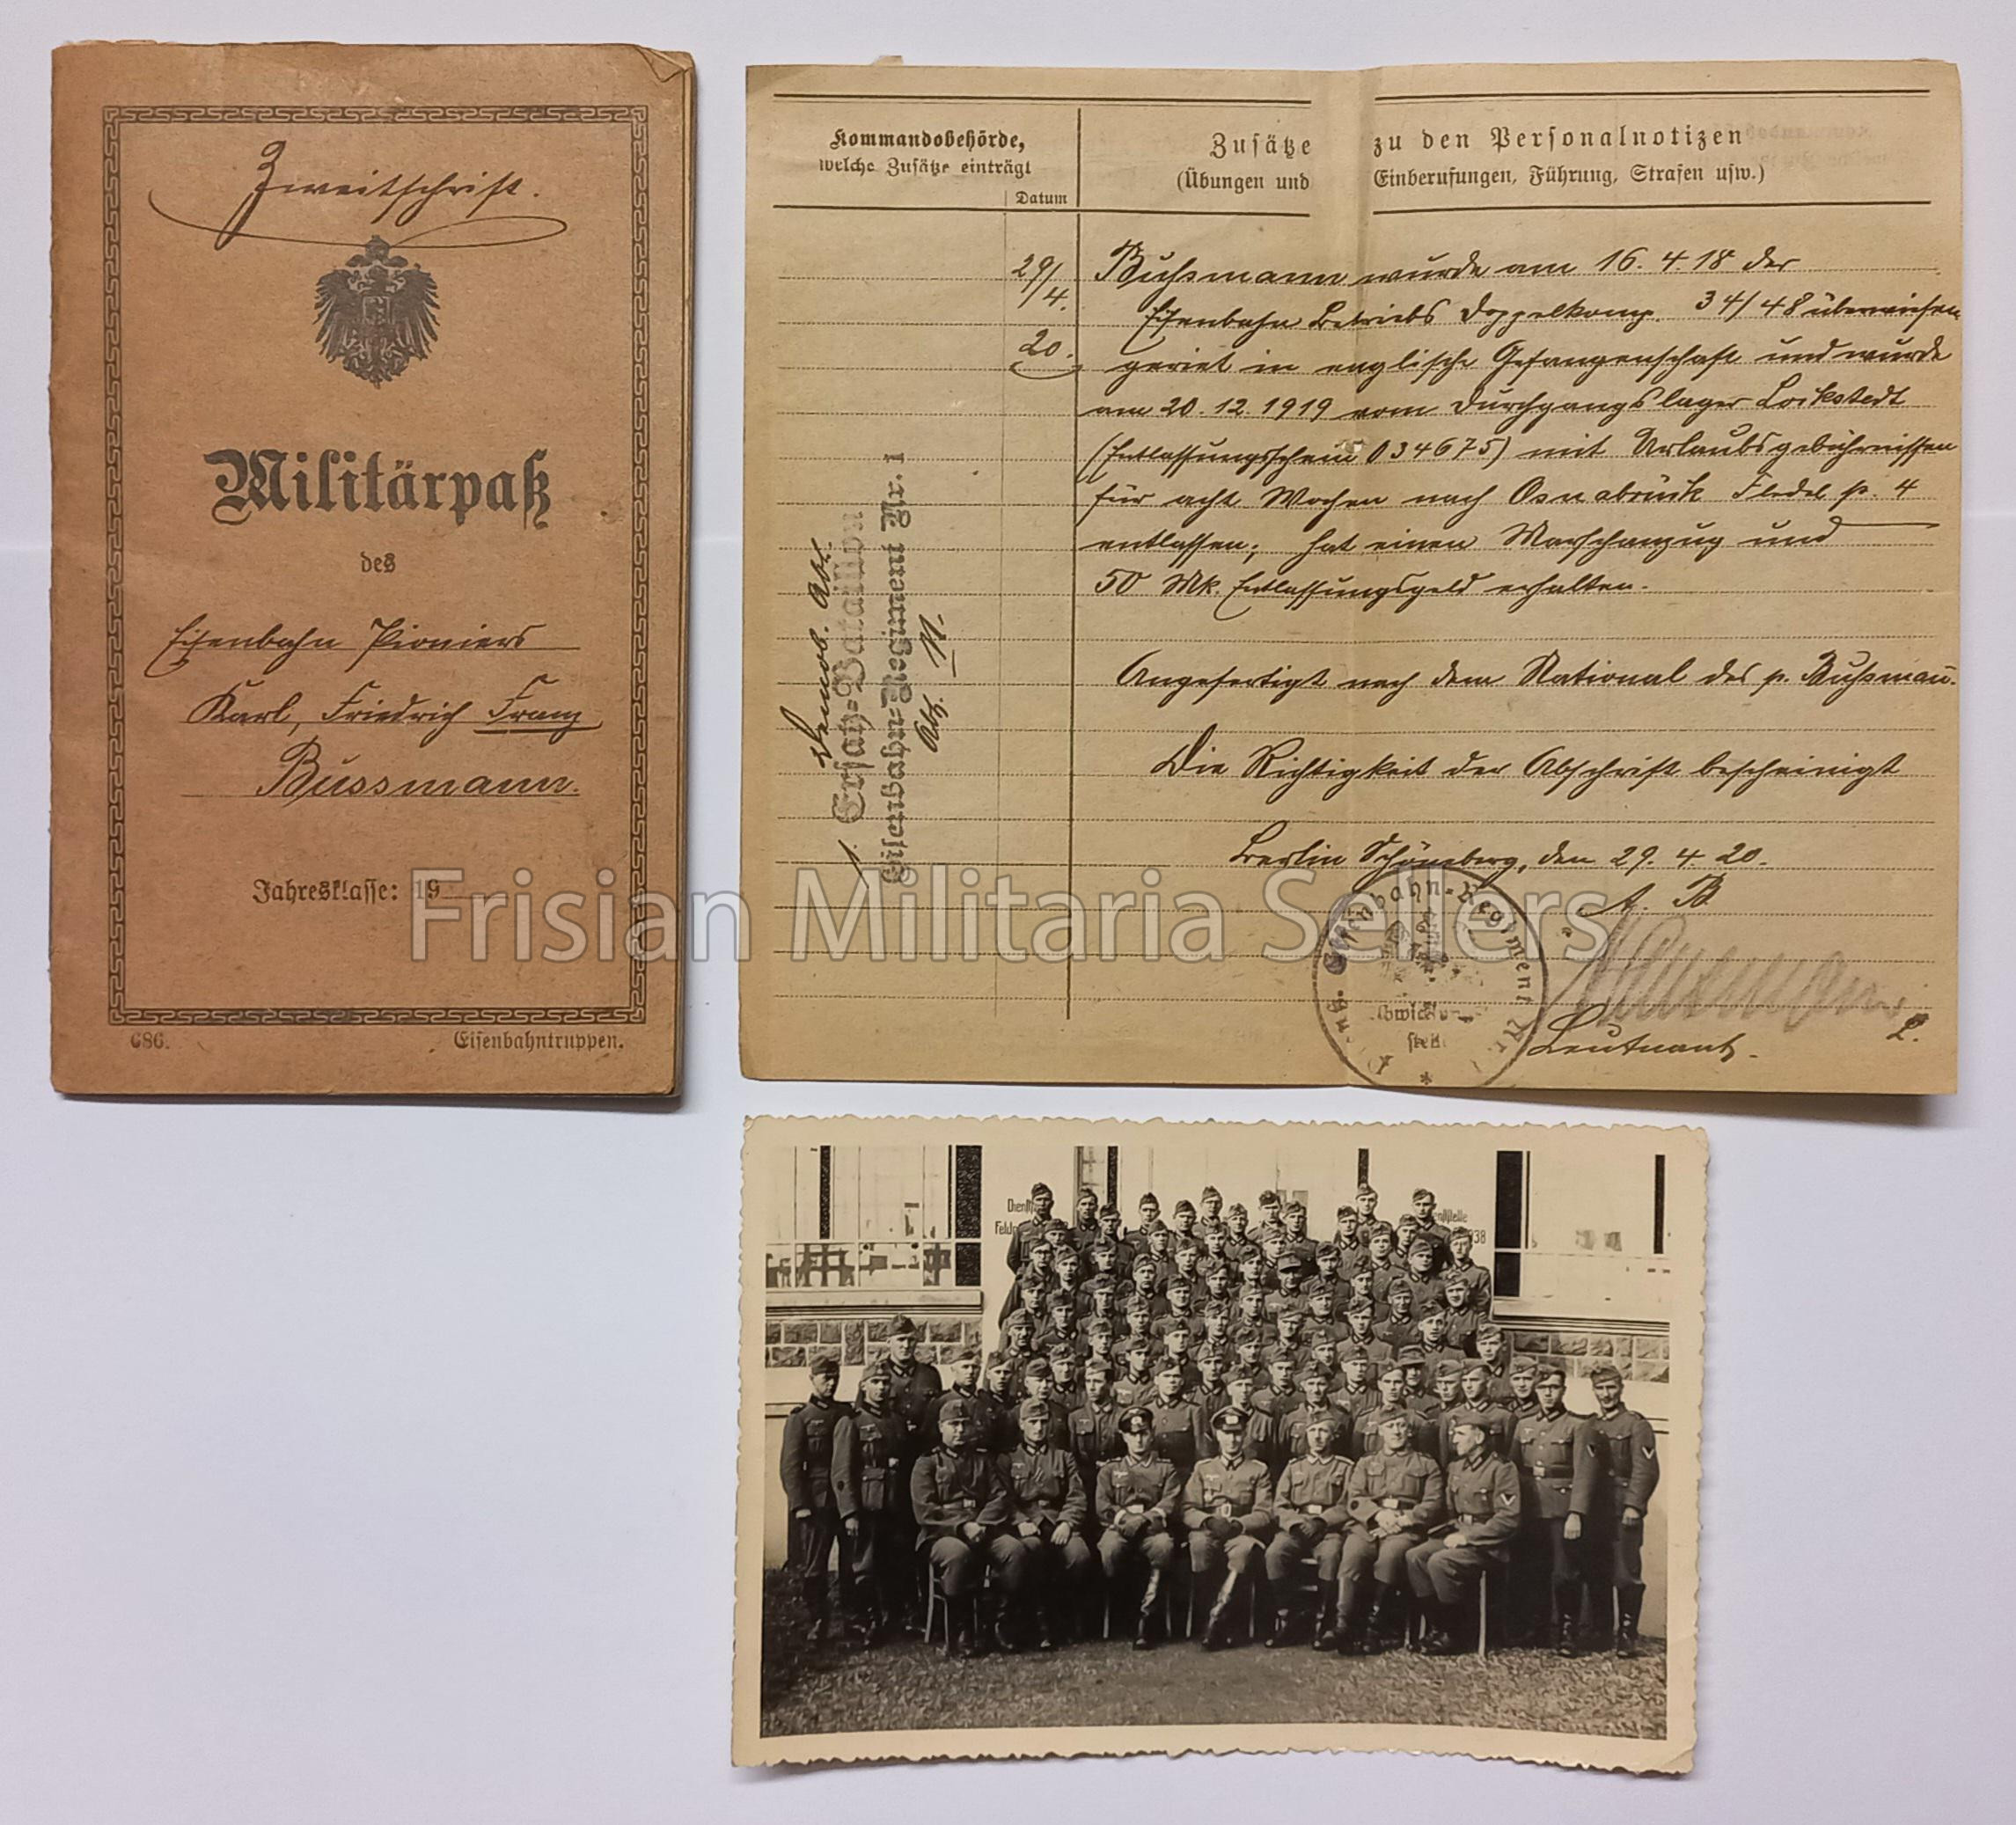 Zweitschrift.
Militärpaß
des
Eisenbahn Pioniers
Karl, Friedrich Franz
Bussmann.
Jahresklasse: 19
686.
Eisenbahntruppen.
Kommandobehörde,
welche Zusätze einträgt
Datum
Zusätze zu den Personalnotizen
(Übungen und Einberufungen, Führung, Strafen usw.)
29/4.
20.
Bußmann wurde am 16.4.18 der
Eisenbahn Betriebs Doppelkomp. 34/48 überwiesen
geriet in englische Gefangenschaft und wurde
am 20.12.1919 vom Durchgangslager Lockstedt
(Entlassungsschein 034675) mit Urlaubsgebührnissen
für acht Wochen nach Osnabrück p. 4
entlassen; hat einen Marschanzug und
50 Mk. Entlassungsgeld erhalten.
Angefertigt nach dem National des p. Bußmann.
Die Richtigkeit der Abschrift bescheinigt
Berlin Schöneberg, den 29.4.20.
A. B
Leutnant.
Demob. Abt.
1. Ersatz-Bataillon
Eisenbahn-Regiment Nr. 1
Abt.
Eisenbahn-Regiment Nr.
Frisian Militaria Sellers
38